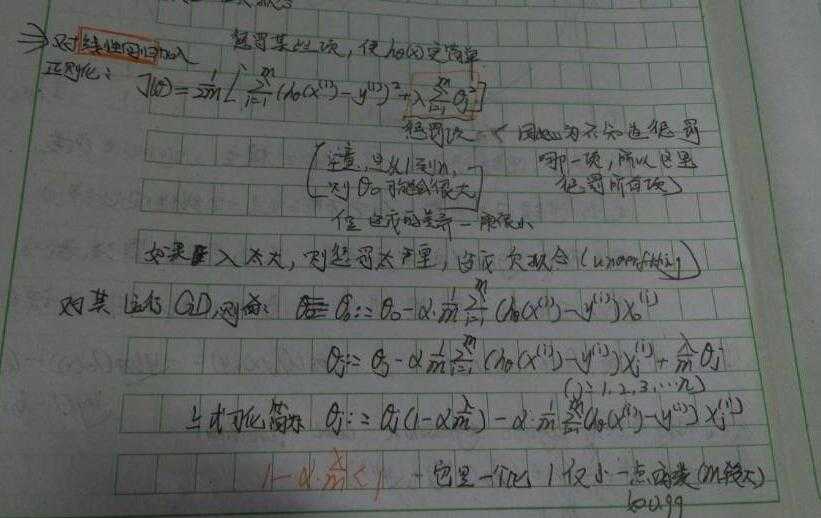 ⇒对线性回归加入 惩罚某些项，使hθ(x)更简单
正则化：J(θ) = 1/2m [ Σ_{i=1}^{m} (hθ(x^(i)) - y^(i))² + λ Σ_{i=1}^{m} θ_j² ]
惩罚项 < 因为不知道惩罚
注意，是从1到n， 哪一项，所以这里
则θ0可能会很大 惩罚所有项)
但造成的差异一般很小
如果λ太大，则惩罚太严重，造成欠拟合(underfitting)
对其运行GD，则有： θ0 := θ0 - α 1/m Σ_{i=1}^{m} (hθ(x^(i)) - y^(i)) x0^(i)
θj := θj - α 1/m Σ_{i=1}^{m} (hθ(x^(i)) - y^(i)) xj^(i) + λ/m θj
(j = 1, 2, 3, …n)
上式可化简为 θj := θj (1 - α λ/m) - α · 1/m Σ_{i=1}^{m} (hθ(x^(i)) - y^(i)) xj^(i)
1 - α · λ/m < 1 这里一个比1仅小一点的数(m较大)
如0.99